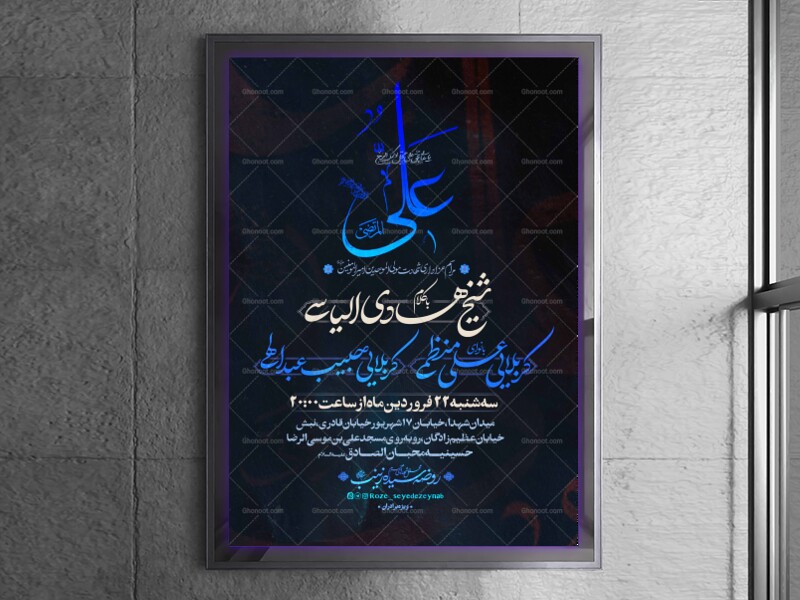 علی
المرتضی
مراسم عزاداری شهادت مولی الموحدین امیرالمومنین
با کلام
شیخ هادی الیاسی
با نوای
کربلایی علی منظمی کربلایی حبیب عبدالهی
سه شنبه ۲۲ فروردین ماه از ساعت ۲۰:۰۰
میدان شهدا، خیابان ۱۷ شهریور خیابان قادری، نبش
خیابان عظیم زادگان، روبه روی مسجد علی بن موسی الرضا
حسینیه محبان الصادق
روضه سیده زینب
@Roze_seyedezeynab
ویژه برادران
Ghonoot.com